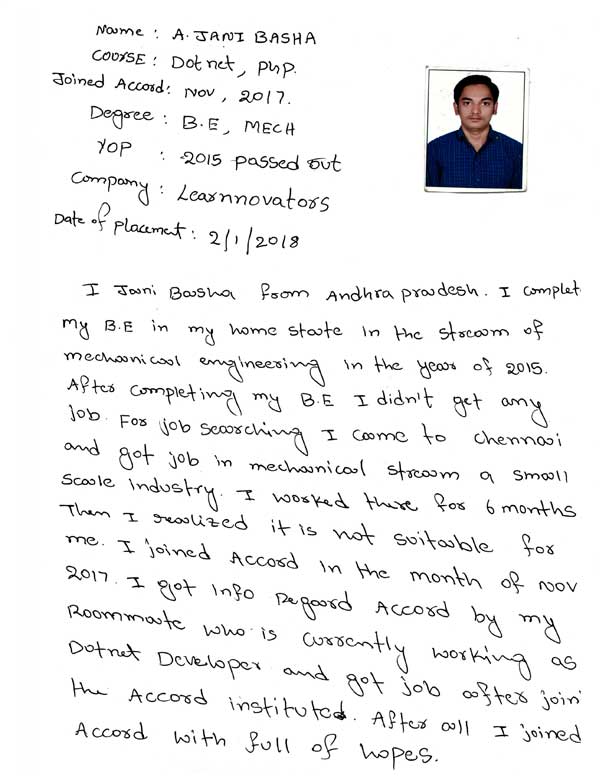 Name : A. JANI BASHA
COURSE : Dotnet, PHP.
Joined Accord : Nov, 2017.
Degree : B.E, MECH
YOP : 2015 passed out
Company : Learnnovators
Date of placement : 2/1/2018
I Jani Basha from Andhra pradesh. I complet
my B.E in my home state in the stream of
mechanical engineering in the year of 2015.
After completing my B.E I didn't get any
job. For job searching I came to chennai
and got job in mechanical stream a small
Scale industry. I worked there for 6 months
Then I realized it is not suitable for
me. I joined Accord in the month of nov
2017. I got info regard Accord by my
Roommate who is currently working as
Dotnet Developer and got job after join
the Accord instituted. After all I joined
Accord with full of hopes.